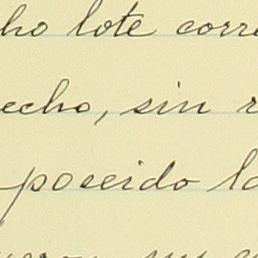 ho lote corre
echo, sin r
poseido la